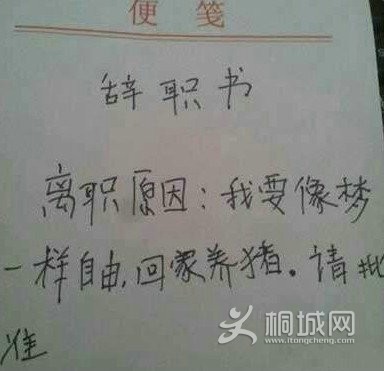 便笺
辞职书
离职原因：我要像梦
一样自由，回家养猪。请批
准
桐城网
www.itongcheng.com